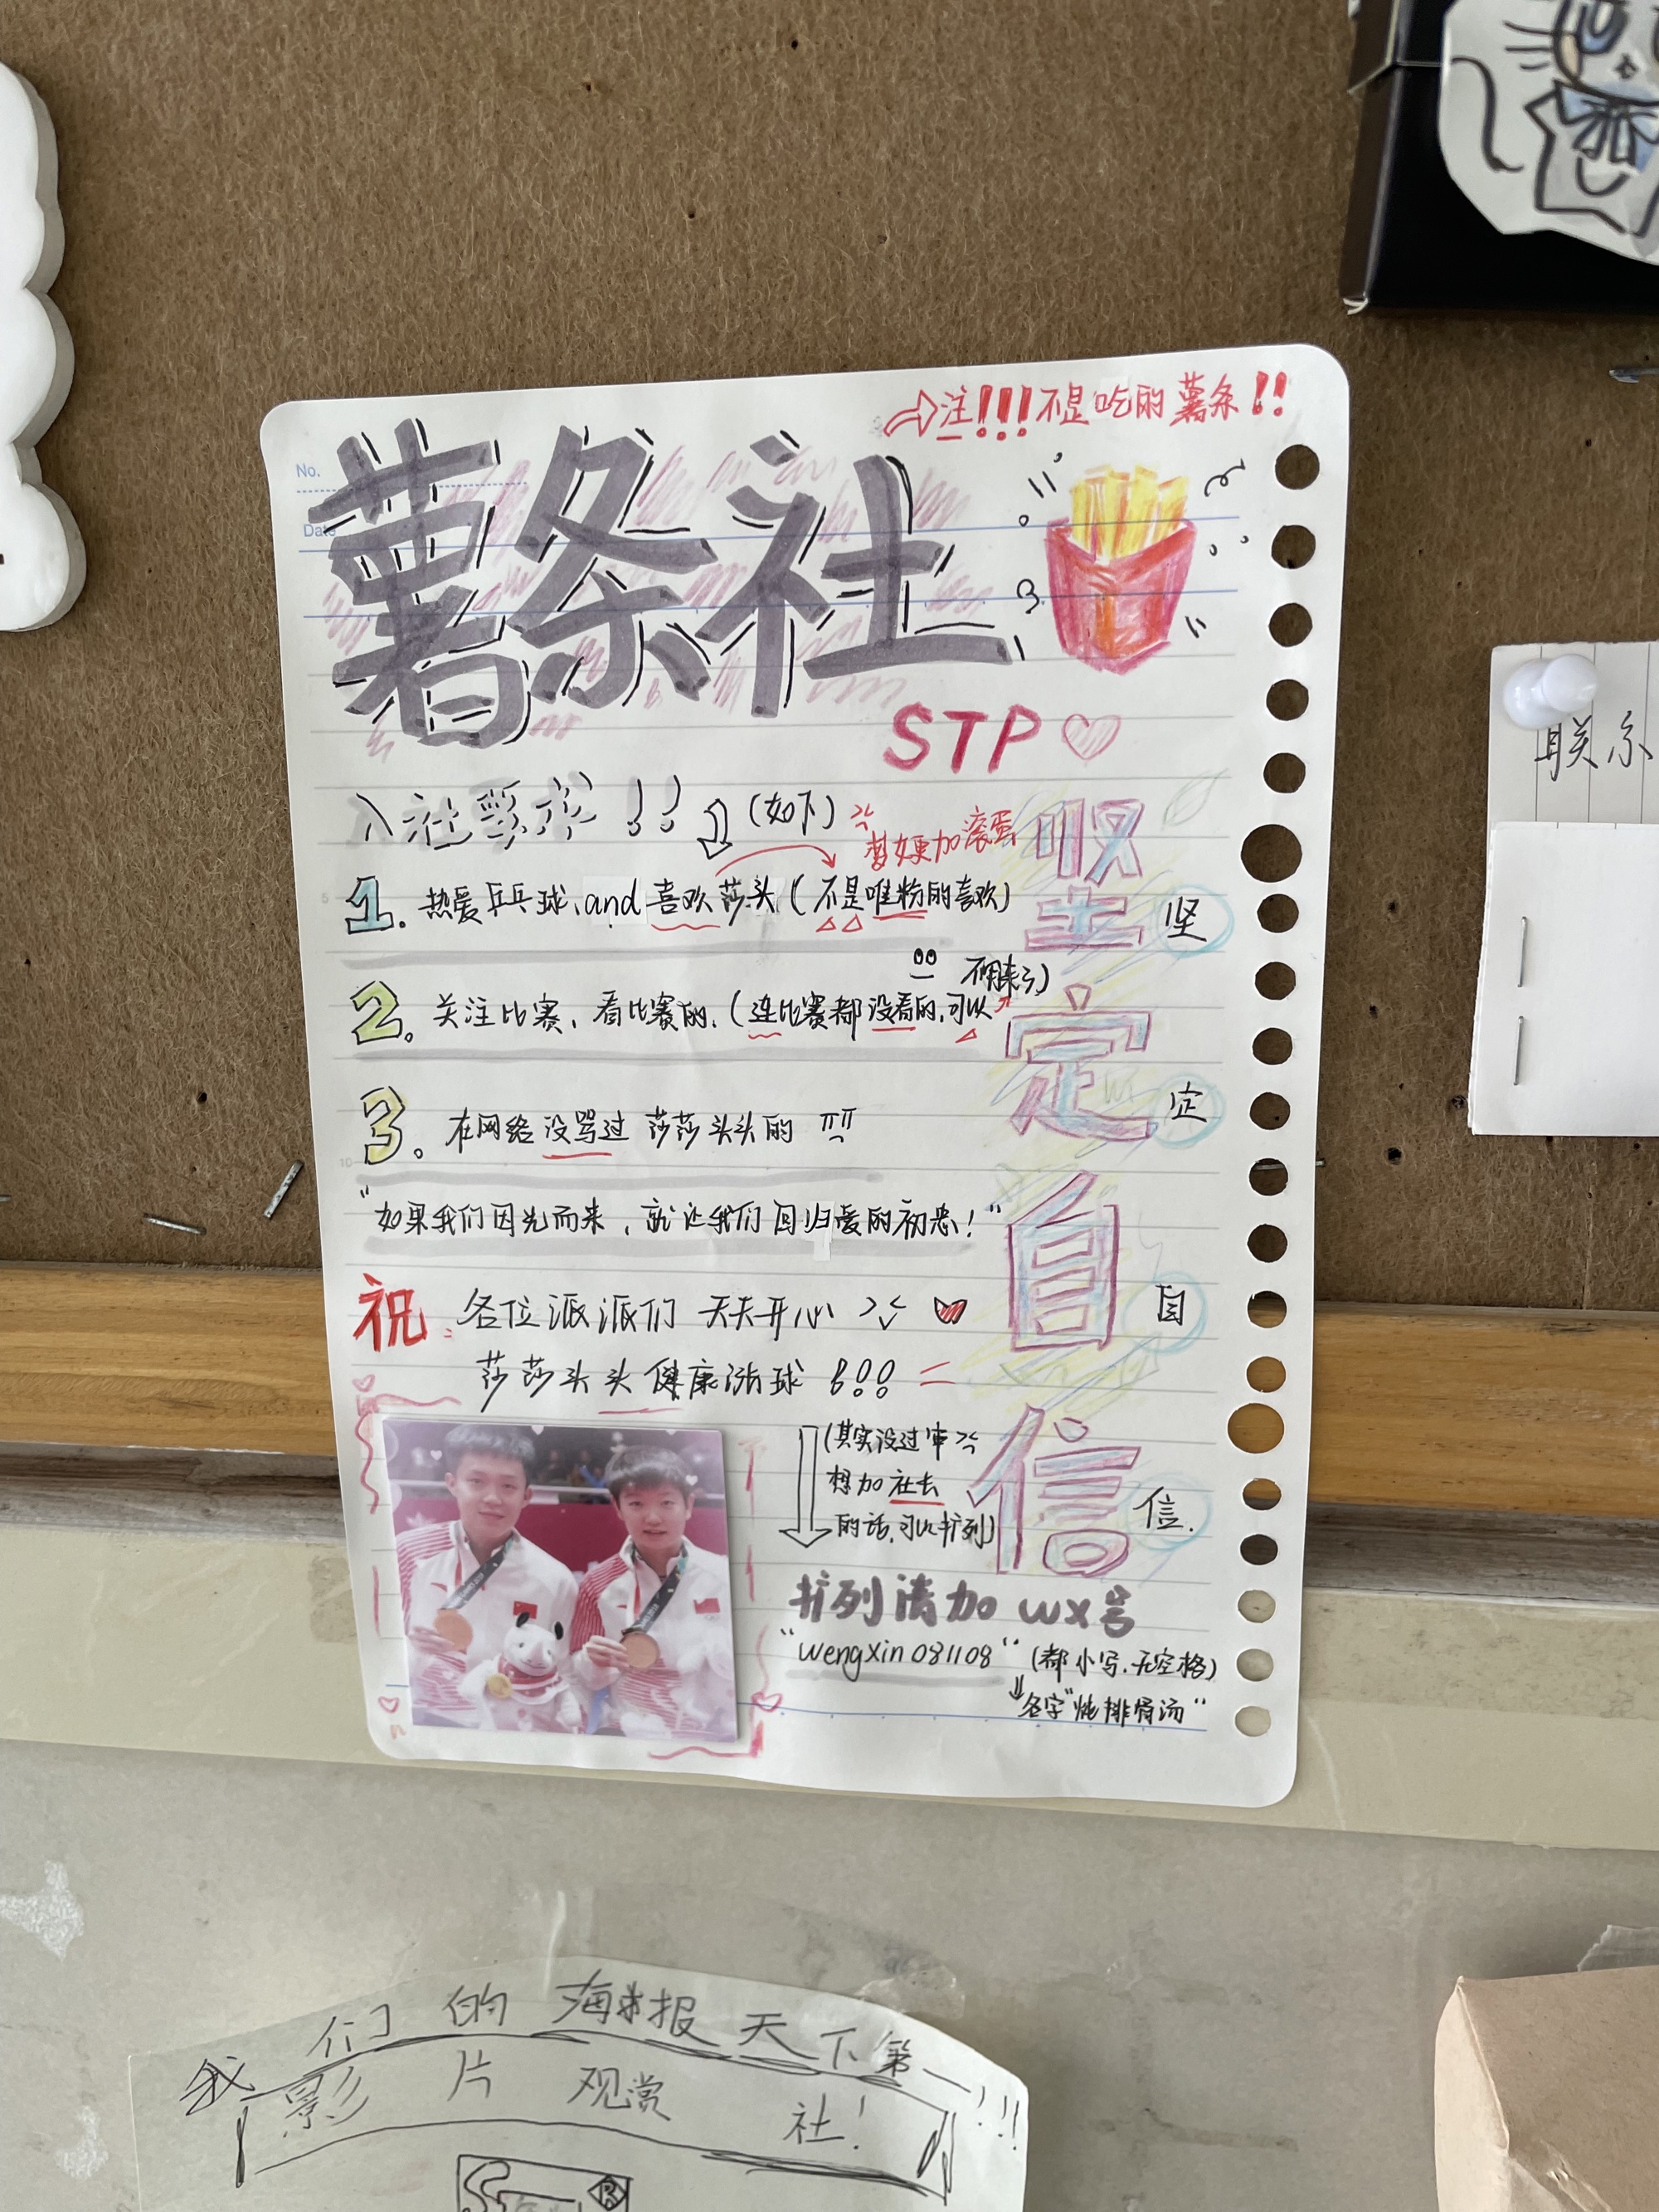 注!!!不是吃的薯条!!
No.
Date
薯条社
STP
入社要求!!(如下)
梦女更加滚蛋
1.热爱乒乓球、and喜欢莎头(不是唯粉的喜欢)
2.关注比赛、看比赛的.(连比赛都没看的,可以
不用来了)
3.在网络没骂过莎莎头头的
"如果我们因光而来,就让我们回归爱的初恋!"
祝:各位派派们天天开心
莎莎头头健康涨球!!!
坚定自信
坚
定
自
信.
(其实没过审
想加社去
的话,可以扩列)
扩列请加wx号
"wengxin081108"(都小写.无空格)
名字"炖排骨汤"
联系
我们的海报天下第一!!!
影片观赏社!